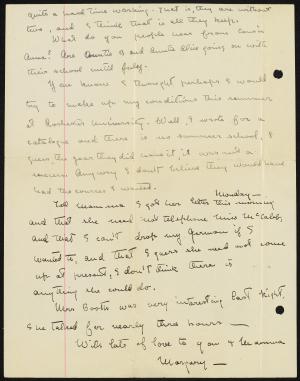 quite a hard time working. That is, they are without
two, and I think that is all they keep.
What do you people hear from Cousin
Anna? Are Curtis B and Aunt going on with
their school until July.
You know I thought perhaps I would
try to make up my conditions this summer
at Rochester University. Well, I wrote for a
catalogue and there is no summer school, I
guess the year they did have it, it was not a
success. Any way I don't believe they would have
had the courses I wanted.
Monday—
Tell Mamma I got her letter this morning
and that she need not telephone Miss McCaleb,
and that I can't drop my German if I
wanted to, and that I guess she need not come
up at present, I don't think there is
anything she could do.
Mrs Booth was very interesting last night,
She talked for nearly three hours —
With lots of love to you & Mamma
Margery.